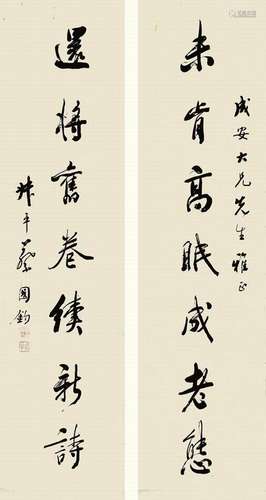 成安大兄先生雅正
未肯高眠成老態
還將舊卷續新詩
叔平 國鈞